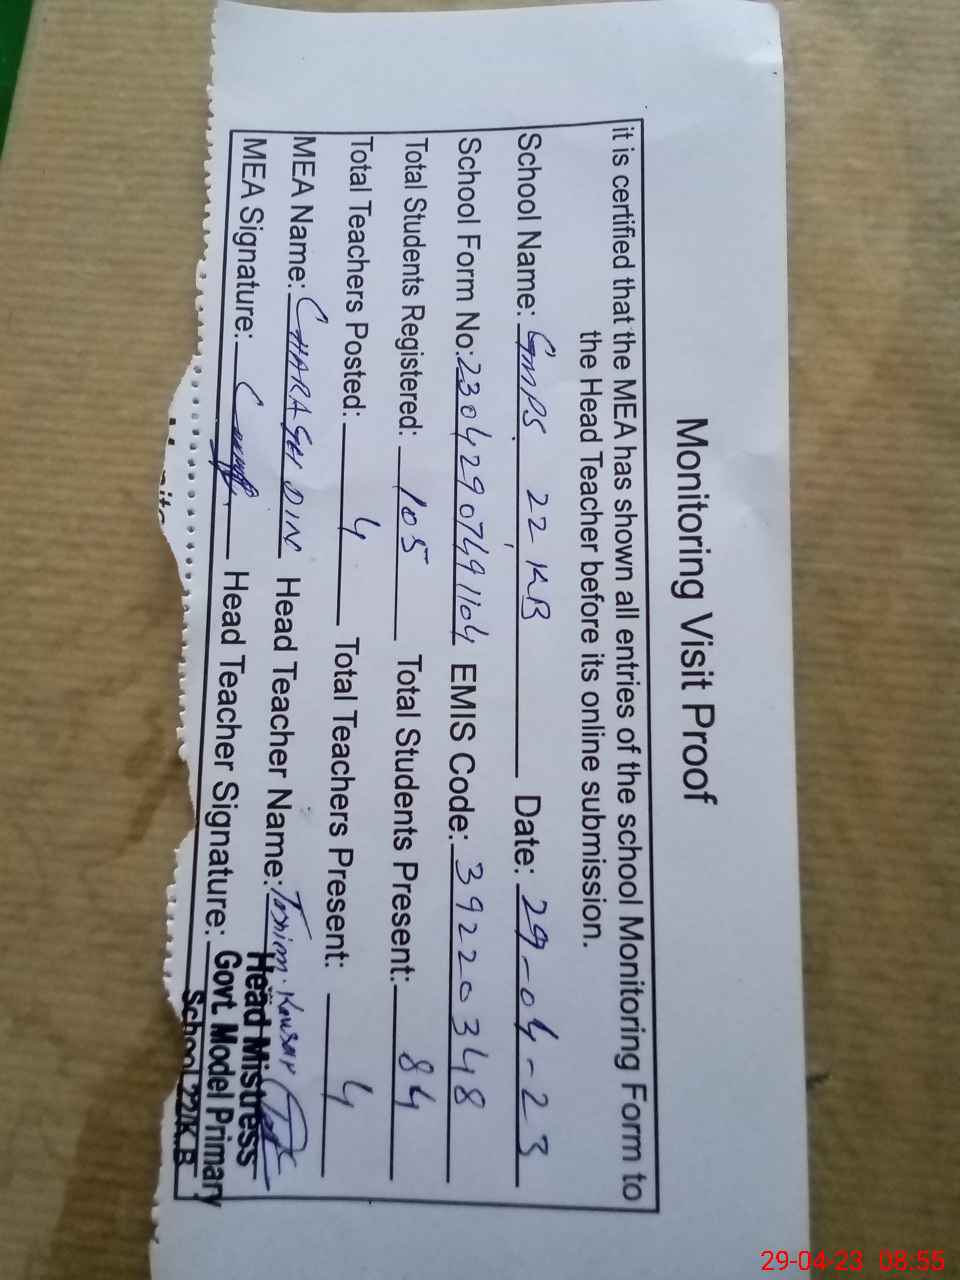 Monitoring Visit Proof
it is certified that the MEA has shown all entries of the school Monitoring Form to
the Head Teacher before its online submission.
School Name: GMPS 22 KB Date: 29-04-23
School Form No: 23042907491104 EMIS Code: 39220348
Total Students Registered: 105 Total Students Present: 84
Total Teachers Posted: 4 Total Teachers Present: 4
MEA Name: CHARAGH DIN Head Teacher Name: Tasnim Kousar
MEA Signature: Head Teacher Signature:
Head Mistress
Govt. Model Primary
School 22/K.B
29-04-23 08:55